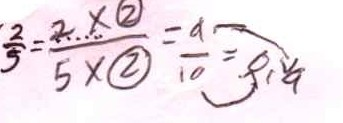 2/5 = 2 × 2 / 5 × 2 = 4/10 = 0,4